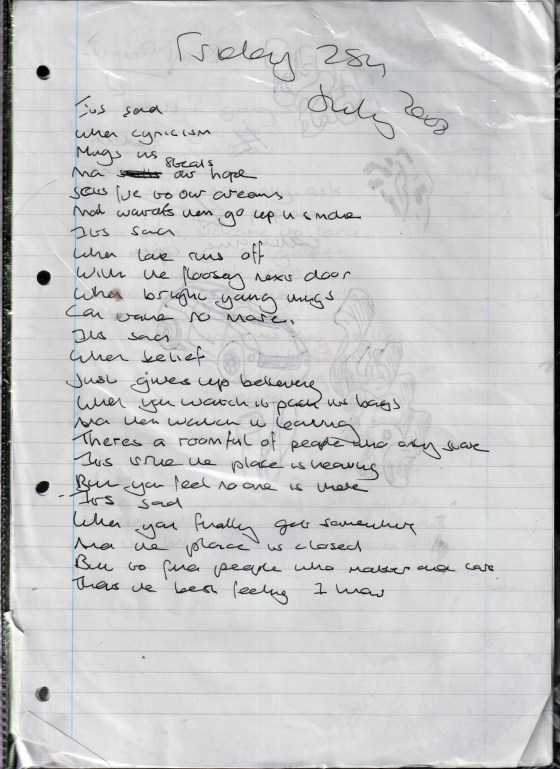 Friday 25th
July 2008
Its sad
When cynicism
Mugs us
And steals our hope
Sets fire to our dreams
And watches them go up in smoke
Its sad
When love runs off
With the floosey next door
When bright young things
Can no more.
Its sad
When belief
Just gives up believing
When you watch it pack its bags
And then watch it leaving
Theres a roomful of people who only stare
Its like the place is heaving
But you feel no one is there
Its sad
When you finally get somewhere
And the place is closed
But to find people who matter and care
Thats the best feeling I know